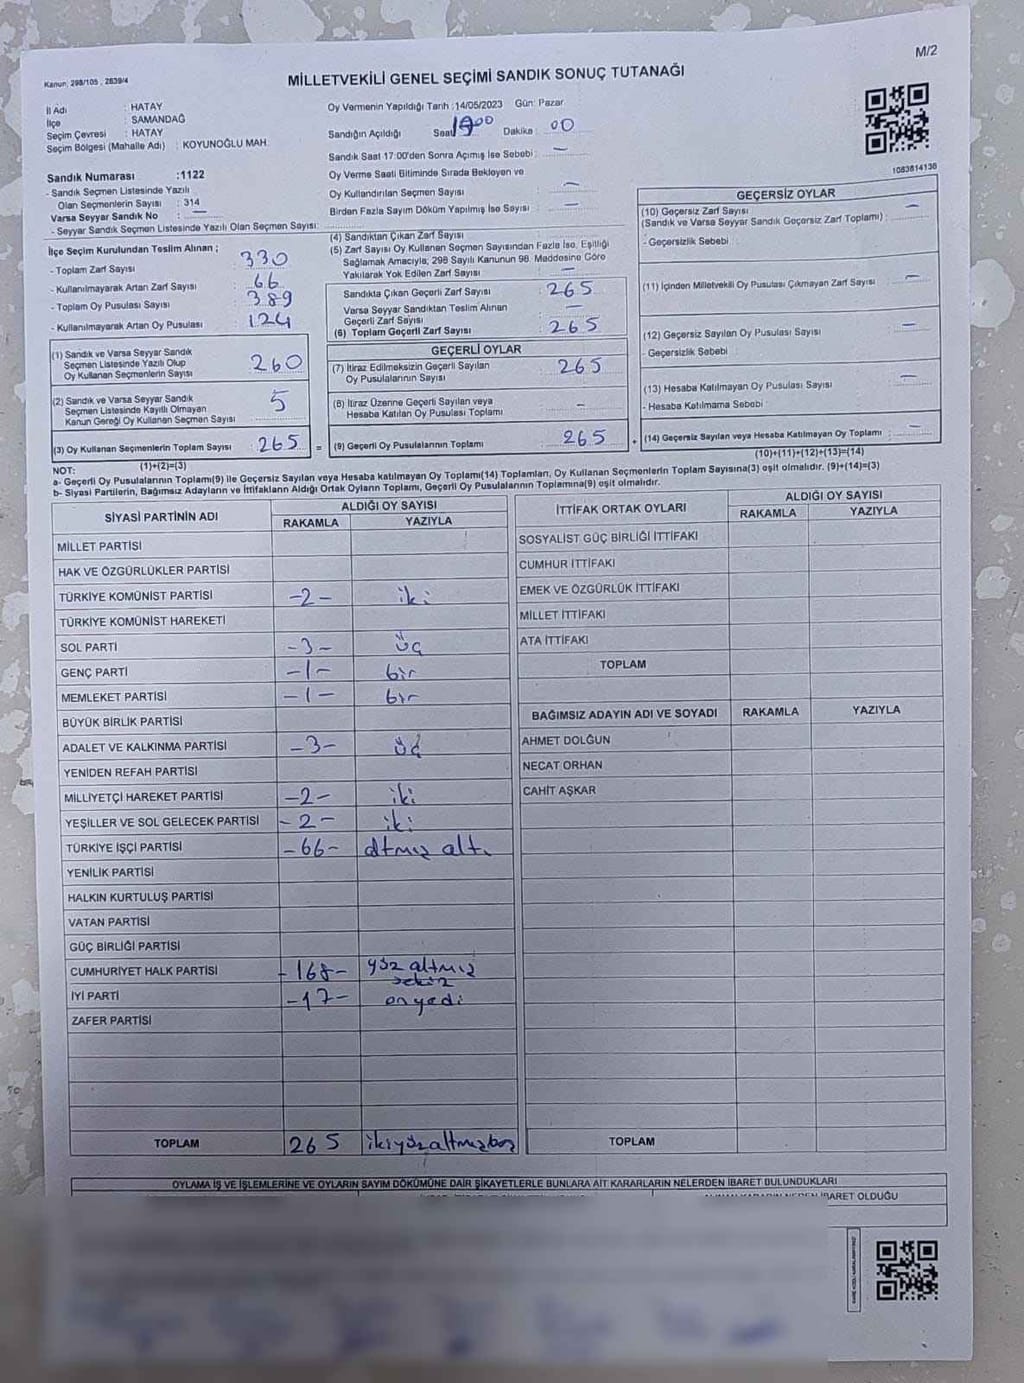 M/2
Kanun: 298/105 , 2839/4
MİLLETVEKİLİ GENEL SEÇİMİ SANDIK SONUÇ TUTANAĞI
İl Adı : HATAY
İlçe : SAMANDAĞ
Seçim Çevresi : HATAY
Seçim Bölgesi (Mahalle Adı) : KOYUNOĞLU MAH.
Oy Vermenin Yapıldığı Tarih :14/05/2023 Gün: Pazar
Sandığın Açıldığı Saat Dakika : 00
Sandık Saat 17:00'den Sonra Açımış İse Sebebi : —
Oy Verme Saati Bitiminde Sırada Bekleyen ve
Oy Kullandırılan Seçmen Sayısı : —
Birden Fazla Sayım Döküm Yapılmış İse Sayısı : —
1083814136
Sandık Numarası :1122
- Sandık Seçmen Listesinde Yazılı
Olan Seçmenlerin Sayısı : 314
Varsa Seyyar Sandık No : —
- Seyyar Sandık Seçmen Listesinde Yazılı Olan Seçmen Sayısı:
İlçe Seçim Kurulundan Teslim Alınan ;
- Toplam Zarf Sayısı : 330
- Kullanılmayarak Artan Zarf Sayısı : 66
- Toplam Oy Pusulası Sayısı : 389
- Kullanılmayarak Artan Oy Pusulası : 124
(1) Sandık ve Varsa Seyyar Sandık
Seçmen Listesinde Yazılı Olup
Oy Kullanan Seçmenlerin Sayısı 260
(2) Sandık ve Varsa Seyyar Sandık
Seçmen Listesinde Kayıtlı Olmayan
Kanun Gereği Oy Kullanan Seçmen Sayısı 5
(3) Oy Kullanan Seçmenlerin Toplam Sayısı : 265 =
(1)+(2)=(3)
(4) Sandıktan Çıkan Zarf Sayısı :
(5) Zarf Sayısı Oy Kullanan Seçmen Sayısından Fazla İse, Eşitliği
Sağlamak Amacıyla; 298 Sayılı Kanunun 98. Maddesine Göre
Yakılarak Yok Edilen Zarf Sayısı : —
Sandıkta Çıkan Geçerli Zarf Sayısı : 265
Varsa Seyyar Sandıktan Teslim Alınan
Geçerli Zarf Sayısı : —
(6) Toplam Geçerli Zarf Sayısı : 265
GEÇERLİ OYLAR
(7) İtiraz Edilmeksizin Geçerli Sayılan
Oy Pusulalarının Sayısı : 265
(8) İtiraz Üzerine Geçerli Sayılan veya
Hesaba Katılan Oy Pusulası Toplamı : —
(9) Geçerli Oy Pusulalarının Toplamı : 265 +
GEÇERSİZ OYLAR
(10) Geçersiz Zarf Sayısı
(Sandık ve Varsa Seyyar Sandık Geçersiz Zarf Toplamı) : —
- Geçersizlik Sebebi :
(11) İçinden Milletvekili Oy Pusulası Çıkmayan Zarf Sayısı : —
(12) Geçersiz Sayılan Oy Pusulası Sayısı : —
- Geçersizlik Sebebi :
(13) Hesaba Katılmayan Oy Pusulası Sayısı : —
- Hesaba Katılmama Sebebi :
(14) Geçersiz Sayılan veya Hesaba Katılmayan Oy Toplamı : —
(10)+(11)+(12)+(13)=(14)
NOT:
a- Geçerli Oy Pusulalarının Toplamı(9) ile Geçersiz Sayılan veya Hesaba katılmayan Oy Toplamı(14) Toplamları, Oy Kullanan Seçmenlerin Toplam Sayısına(3) eşit olmalıdır. (9)+(14)=(3)
b- Siyasi Partilerin, Bağımsız Adayların ve İttifakların Aldığı Ortak Oyların Toplamı, Geçerli Oy Pusulalarının Toplamına(9) eşit olmalıdır.
SİYASİ PARTİNİN ADI ALDIĞI OY SAYISI
RAKAMLA YAZIYLA
MİLLET PARTİSİ
HAK VE ÖZGÜRLÜKLER PARTİSİ
TÜRKİYE KOMÜNİST PARTİSİ -2- iki
TÜRKİYE KOMÜNİST HAREKETİ
SOL PARTİ -3- üç
GENÇ PARTİ -1- bir
MEMLEKET PARTİSİ -1- bir
BÜYÜK BİRLİK PARTİSİ
ADALET VE KALKINMA PARTİSİ -3- üç
YENİDEN REFAH PARTİSİ
MİLLİYETÇİ HAREKET PARTİSİ -2- iki
YEŞİLLER VE SOL GELECEK PARTİSİ -2- iki
TÜRKİYE İŞÇİ PARTİSİ -66- altmış altı
YENİLİK PARTİSİ
HALKIN KURTULUŞ PARTİSİ
VATAN PARTİSİ
GÜÇ BİRLİĞİ PARTİSİ
CUMHURİYET HALK PARTİSİ -168- yüz altmış sekiz
İYİ PARTİ -17- onyedi
ZAFER PARTİSİ
TOPLAM 265 ikiyüzaltmışbeş
İTTİFAK ORTAK OYLARI ALDIĞI OY SAYISI
RAKAMLA YAZIYLA
SOSYALİST GÜÇ BİRLİĞİ İTTİFAKI
CUMHUR İTTİFAKI
EMEK VE ÖZGÜRLÜK İTTİFAKI
MİLLET İTTİFAKI
ATA İTTİFAKI
TOPLAM
BAĞIMSIZ ADAYIN ADI VE SOYADI RAKAMLA YAZIYLA
AHMET DOLĞUN
NECAT ORHAN
CAHİT AŞKAR
TOPLAM
OYLAMA İŞ VE İŞLEMLERİNE VE OYLARIN SAYIM DÖKÜMÜNE DAİR ŞİKAYETLERLE BUNLARA AİT KARARLARIN NELERDEN İBARET BULUNDUKLARI
İBARET OLDUĞU